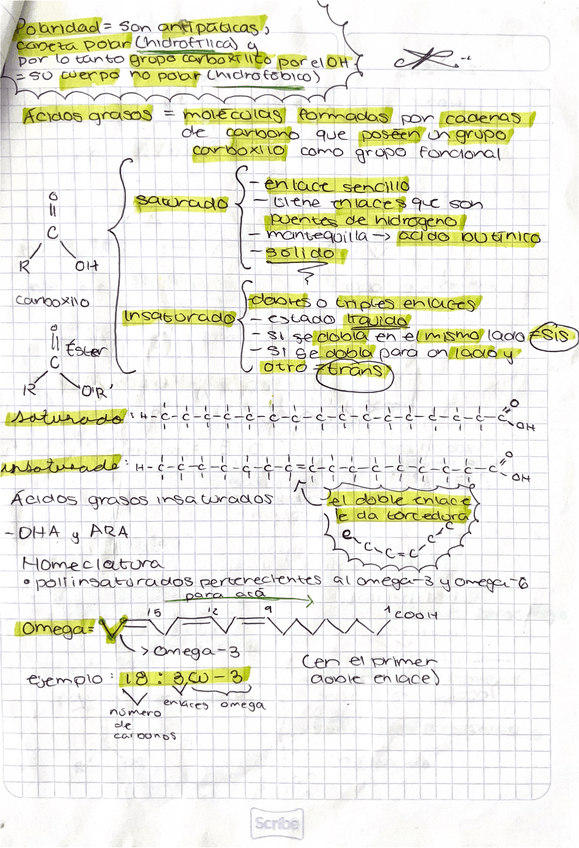 Polaridad = son antipáticas,
cabeza polar (hidrofílica) y
por lo tanto grupo carboxílico por el OH
= su cuerpo no polar (hidrofóbico)
Ácidos grasos = moléculas formadas por cadenas
de carbono que poseen un grupo
carboxilo como grupo funcional
saturado
- enlace sencillo
- tiene enlaces que son
puentes de hidrógeno
- mantequilla → ácido butínico
- sólido
O
||
C
R OH
carboxilo
Insaturado
dobles o triples enlaces
- estado líquido
- si se dobla en el mismo lado = sis
- si se dobla para un lado y
otro = trans
O
||
C
Éster
R OR'
saturado: H-C-C-C-C-C-C-C-C-C-C-C-C-C-C-C-C-C-C O OH
insaturado: H-C-C-C-C-C-C-C-C=C-C-C-C-C-C-C-C-C-C O OH
Ácidos grasos insaturados
el doble enlace
le da torcedura
C C C = C C C C
- DHA y ARA
Nomeclatura
• poliinsaturados pertenecientes al omega-3 y omega-6
para acá
Omega= 15 12 9 1 COOH
> omega-3
(en el primer
doble enlace)
ejemplo: 18 : 3 ω - 3
número
de
carbonos
enlaces omega
Scribe